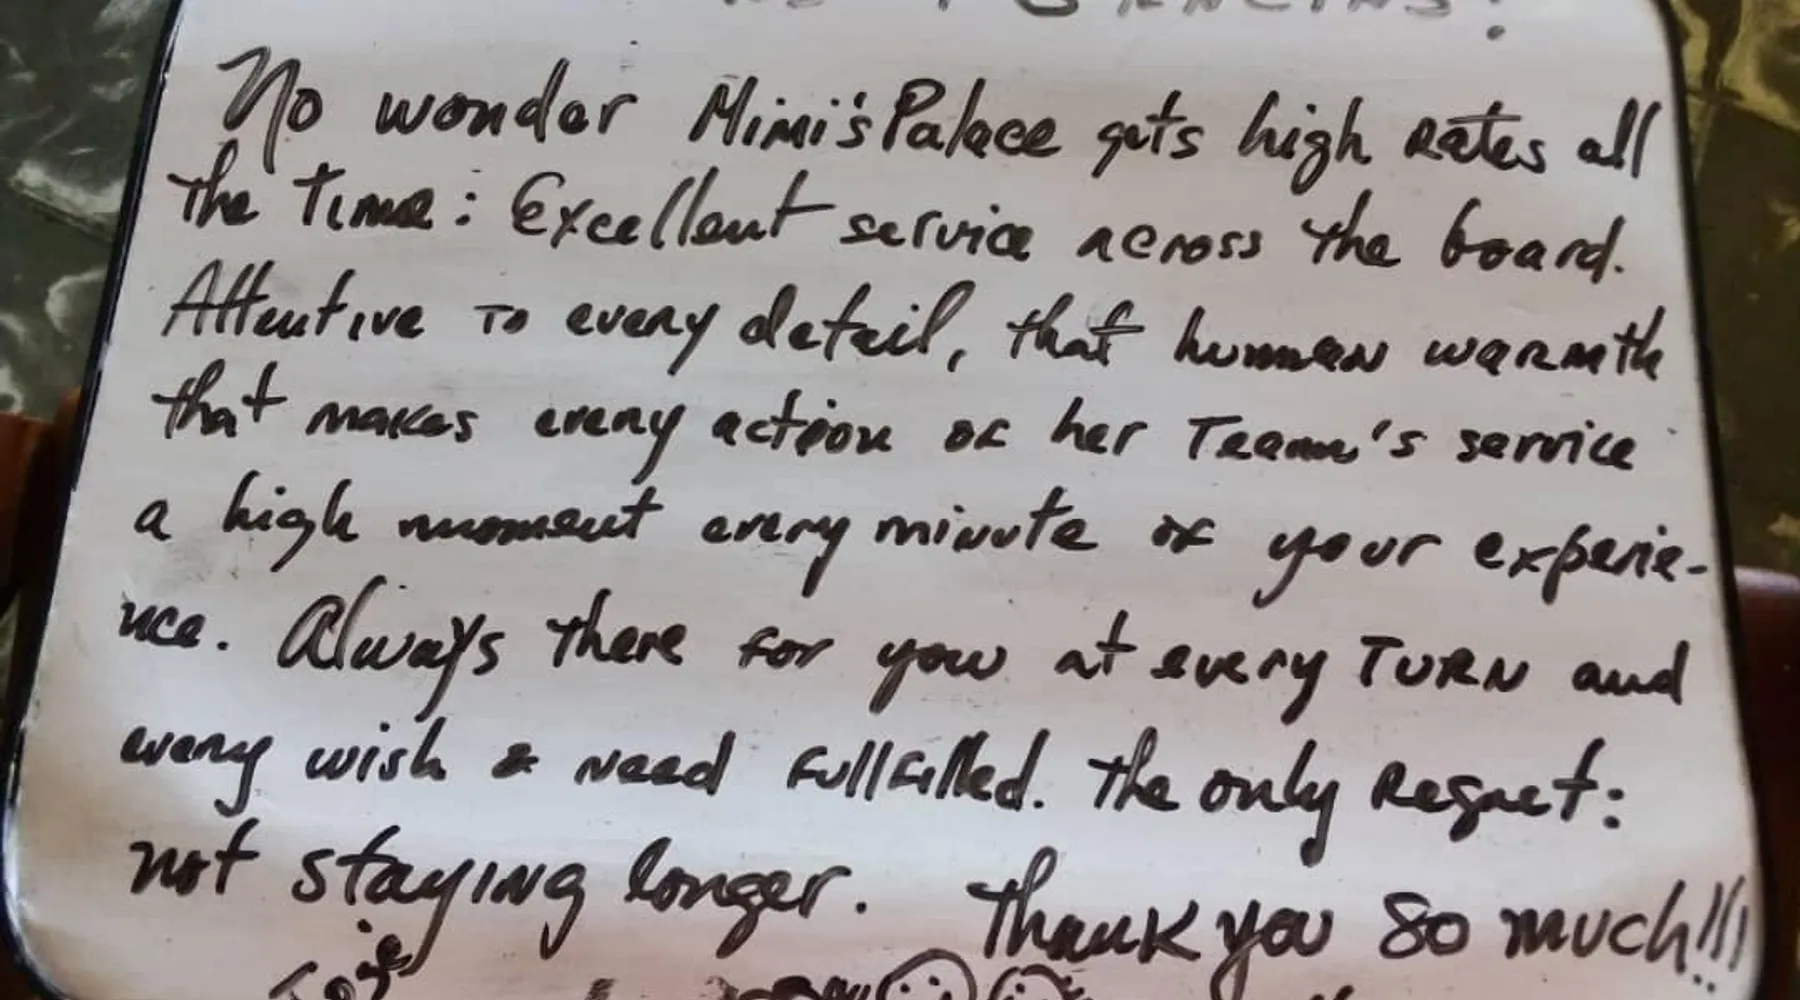 No wonder Mimi's Palace gets high Rates all
the Time: Excellent service across the board.
Attentive To every detail, that human warmth
that makes every action of her Team's service
a high moment every minute of your experie-
nce. Always there for you at every TURN and
every wish & need fullfilled. The only Regret:
not staying longer. Thank you so much!!!